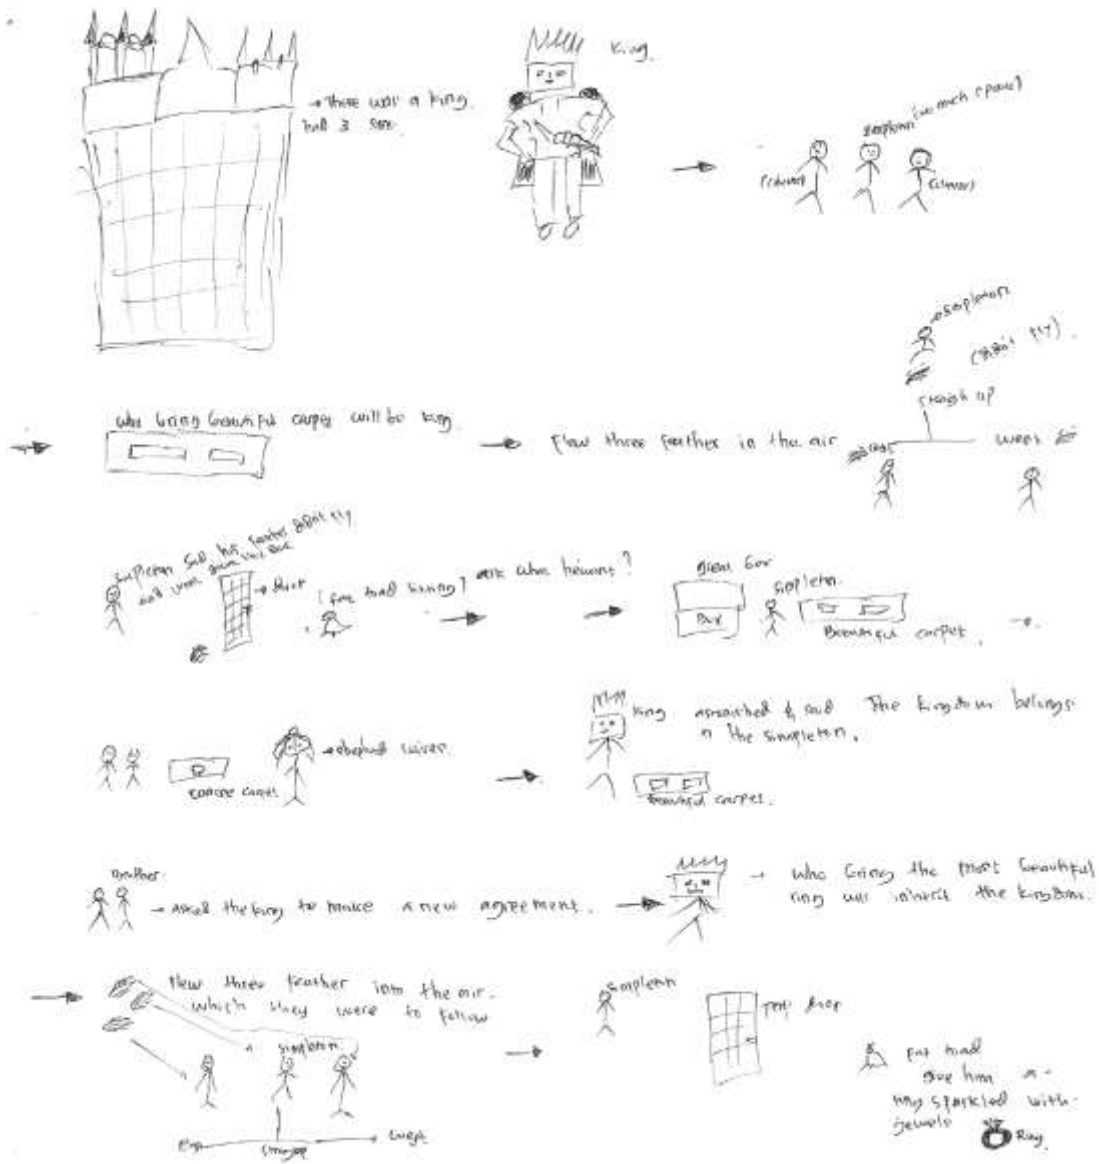 → There was a king
had 3 son.
King.
Simpleton (not much speak)
(clever)
(clever)
Simpleton
(didn't fly)
straigh up
who bring beautiful carpet will be king
Flew three feather in the air
east
west
Simpleton sad his feather didn't fly
and went down
→ door
(fat toad living)
ask who he want?
great box
Box
Simpleton.
Beautiful carpet.
→ shepherd wives.
coarse carpet
King
astonished & said The kingdom belongs
to the simpleton.
Beautiful carpet.
Brother.
→ asked the king to make a new agreement.
→ who bring the most beautiful
ring will inherit the kingdom.
flew three feather into the air.
which they were to follow
Simpleton.
East
Straight
West
Simpleton
Trap door
Fat toad
give him a
ring sparkled with
jewels
Ring.